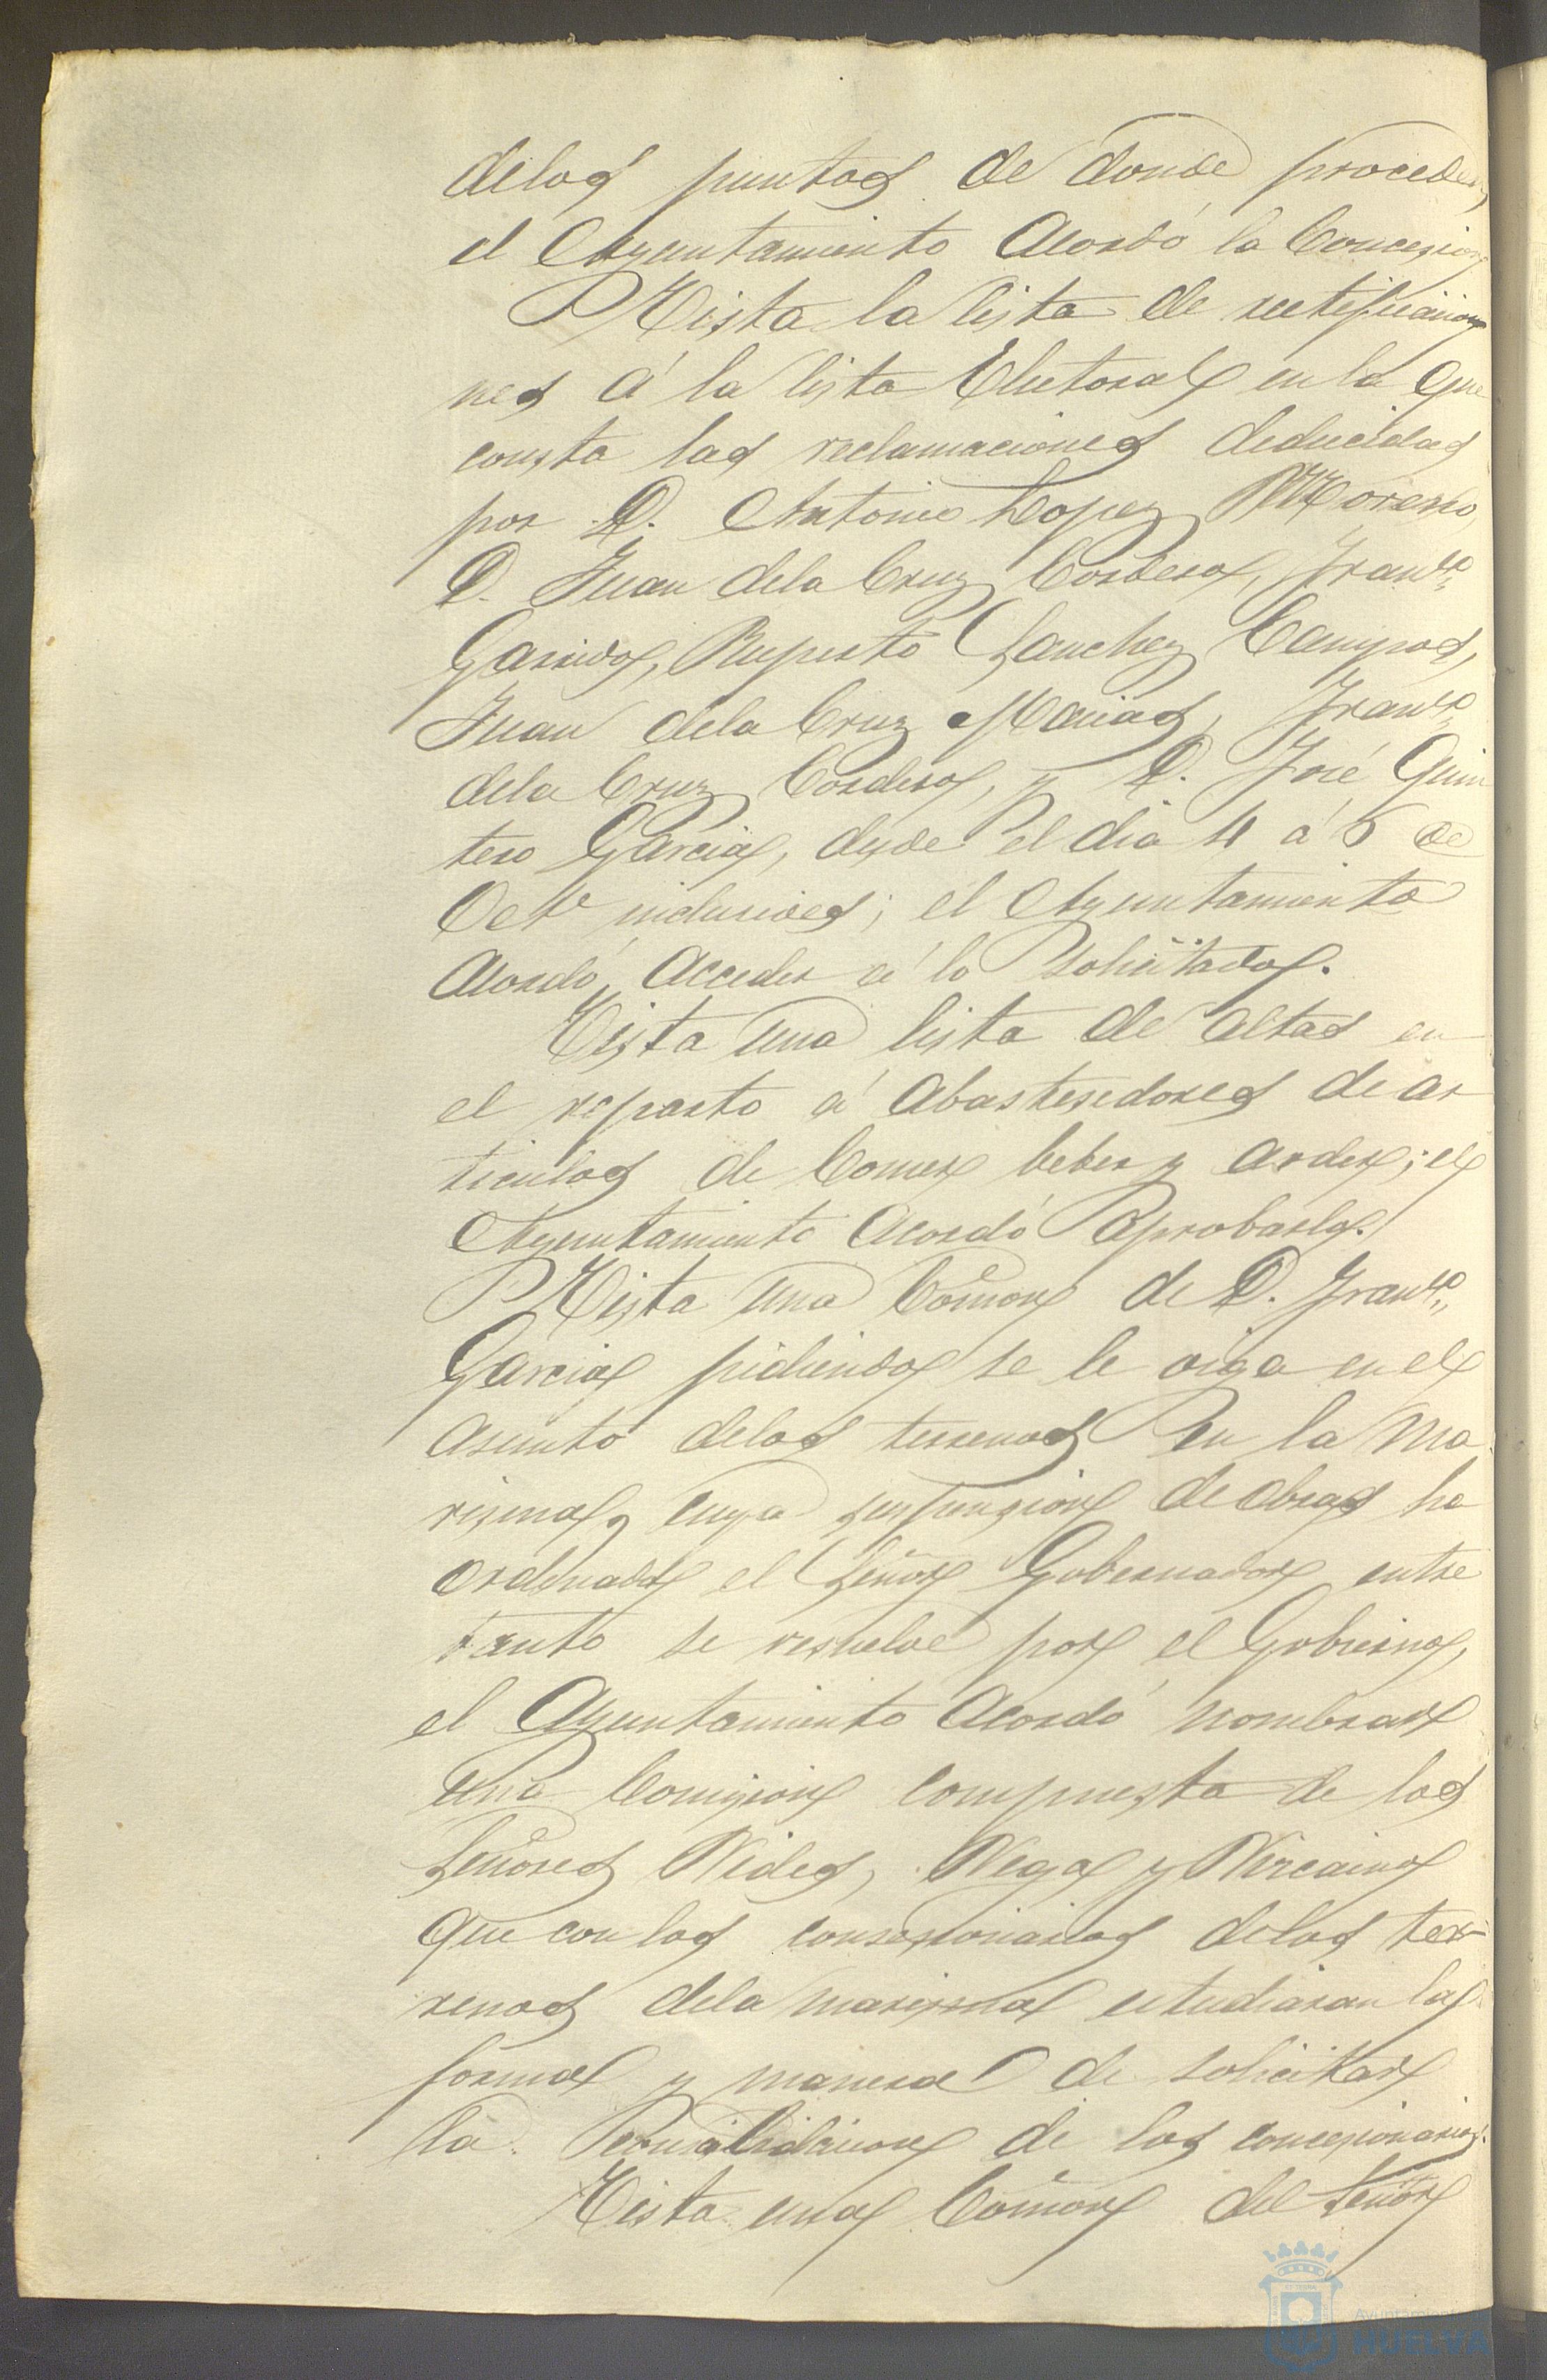 delos puntos de donde proceden,
el Ayuntamiento Acordó la Concesion
Vista la lista de rectificacio
nes á la lista Electoral en la que
consta las reclamaciones deducidas
por D. Antonio Lopez Moreno,
D. Juan dela Cruz Cordero, Franco.
Garrido, Ruperto Sanchez Campos,
Juan dela Cruz Macias, Franco.
dela Cruz Cordero, y D. José Quin
tero Garcia, desde el dia 4 á 6 de
Oct.e inclusives; el Ayuntamiento
Acordó Acceder á lo Solicitado.
Vista una lista de altas en
el reparto á Abastesedores de ar
ticulos de Comer beber y arder; el
Ayuntamiento Acordó aprobarlo.
Vista una Comon de D. Franco.,
Garcia pidiendo se le oiga en el
asunto delos terrenos en la Ma
risma, cuya suspension de obras ha
ordenado el Señor Gobernador entre
tanto se resuelve por el Gobierno,
el Ayuntamiento Acordó nombrar
una Comision compuesta de los
Señores Vides, Vega y Vizcaino
que con los consesionarios delos ter-
renos dela marisma estudiaran la
forma y manera de solicitar
la de los concesionarios.
Vista una Comon del Señor
Ayuntamiento
HUELVA